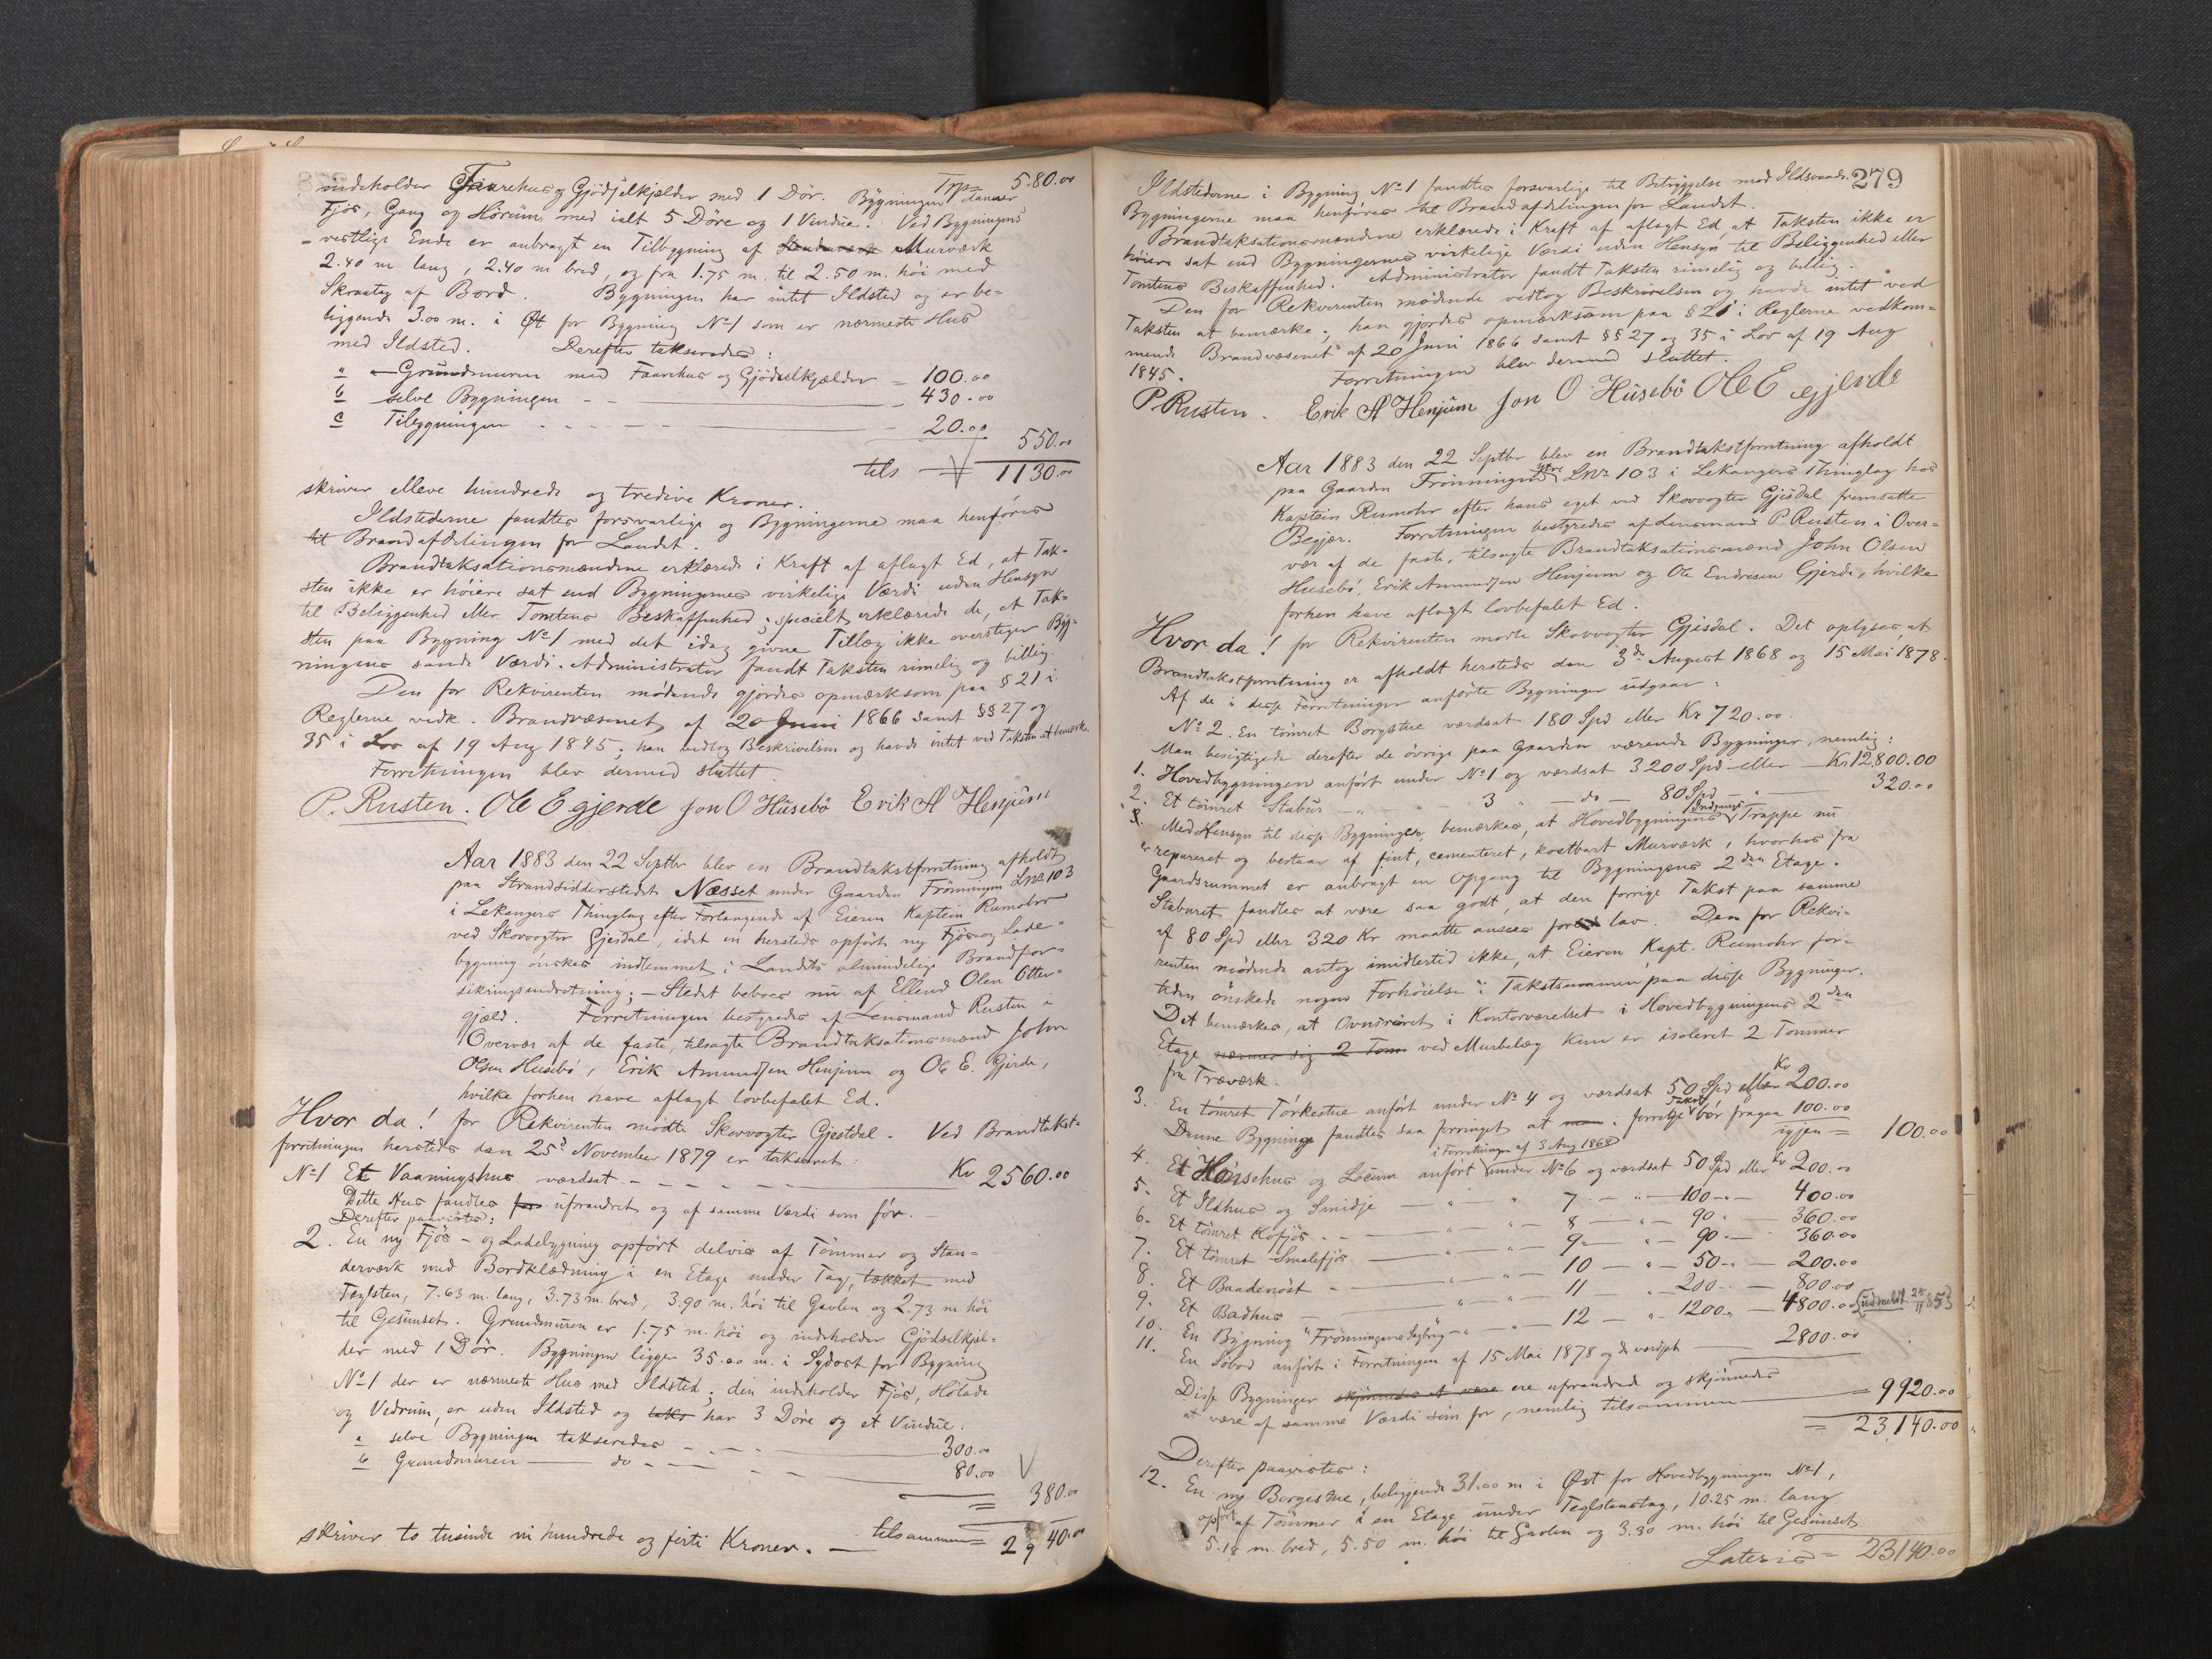 Trp= 580.00
indeholder Faarehus og Gjödselkjelder med 1 Dör. Bygningen danner
Fjös, Gang og Hörum med ialt 5 Döre og 1 Vindue. Ved Bygningens
vestlige Ende er anbragt en Tilbygning af Murværk
2.40 m lang, 2.40 m bred, og fra 1.75 m. til 2.50 m. höi med
Skraatag af Bord. Bygningen har intet Ildsted og er be-
liggende 3.00 m. i Øst for Bygning No 1 som er nærmeste Hus
med Ildsted. Derefter takseredes:
a Grundmuren med Faarehus og Gjödselkjælder = 100.00
b selve Bygningen - - 430.00
c Tilbygningen - - - - 20.00
550.00
tils 1130.00
skriver elleve hundrede og tredive Kroner.
Ildstederne fandtes forsvarlige og Bygningerne maa henföres
til Brandafdelingen for Landet.
Brandtaksationsmændene erklærede i Kraft af aflagt Ed, at Tak-
sten ikke er höiere sat end Bygningernes virkelige Værdi uden Hensyn
til Beliggenhed eller Tomtens Beskaffenhed; specielt erklærede de, at Tak-
sten paa Bygning No 1 med det idag givne Tillæg ikke overstiger Byg-
ningens sande Værdi. Administrator fandt Taksten rimelig og billig.
Den for Rekvirenten mödende gjordes opmærksom paa § 21 i
Reglerne vedk. Brandvæsenet af 20 Juni 1866 samt §§ 27 og
35 i Lov af 19 Aug 1845; han vedtog Beskrivelsen og havde intet ved Taksten at bemærke.
Forretningen blev dermed sluttet.
P. Rusten. Ole E gjerde Jon O Husebö Erik A Henjum
Aar 1883 den 22 Septbr blev en Brandtakstforretning afholdt
paa Strandsidderstedet Næsset under Gaarden Frönningen Lnr 103
i Lekangers Thinglag efter Forlangende af Eieren Kaptein Rumohr
ved Skovvogter Gjesdal, idet en hersteds opfört ny Fjös og Lade-
bygning önskes indlemmet i Landets almindelige Brandfor-
sikringsindretning; - Stedet beboes nu af Ellend Olsen Otter-
gjæld. Forretningen bestyredes af Lensmand Rusten i
Overvær af de faste, tilsagte Brandtaksationsmænd John
Olsen Husebö, Erik Amundsen Henjum og Ole E. Gjerde,
hvilke forhen have aflagt lovbefalet Ed.
Hvor da! for Rekvirenten mödte Skovvogter Gjestdal. Ved Brandtakst-
forretningen hersteds den 25de November 1879 er takseret:
No 1 Et Vaaningshus værdsat - - - - - Kr 2560.00
Dette Hus fandtes uforandret og af samme Værdi som för.
Derefter paavistes:
2. En ny Fjös- og Ladebygning opfört delvis af Tömmer og Stan-
derværk med Bordklædning i en Etage under Tag, tækket med
Teglsten, 7.63 m. lang, 3.73 m. bred, 3.90 m. höi til Gavlen og 2.73 m höi
til Gesimset. Grundmuren er 1.75 m. höi og indeholder Gjödselkjel-
der med 1 Dör. Bygningen ligger 35.00 m. i Sydost for Bygning
No 1 der er nærmeste Hus med Ildsted; den indeholder Fjös, Hölade
og Vedrum, er uden Ildsted og har 3 Döre og et Vindue.
a selve Bygningen takseredes - - - 300.00
b Grundmuren do - - - 80.00
= 380.00
skriver to tusinde ni hundrede og firti Kroner. tilsammen = 2940.00
279
Ildstederne i Bygning No 1 fandtes forsvarlige til Betryggelse mod Ildsvaade.
Bygningerne maa henföres til Brandafdelingen for Landet.
Brandtaksationsmændene erklærede i Kraft af aflagt Ed at Taksten ikke er
höiere sat end Bygningernes virkelige Værdi uden Hensyn til Beliggenhed eller
Tomtens Beskaffenhed. Administrator fandt Taksten rimelig og billig.
Den for Rekvirenten mödende vedtog Beskrivelsen og havde intet ved
Taksten at bemærke; han gjordes opmærksom paa § 21 i Reglerne vedkom-
mende Brandvæsenet af 20 Juni 1866 samt §§ 27 og 35 i Lov af 19 Aug
1845. Forretningen blev dermed sluttet.
P. Rusten. Erik A Henjum Jon O Husebö Ole E gjerde
Aar 1883 den 22 Septbr blev en Brandtakstforretning afholdt
paa Gaarden Frönningen ytre Lnr 103 i Lekangers Thinglag hos
Kaptein Rumohr efter hans eget ved Skovvogter Gjesdal fremsatte
Begjær. Forretningen bestyredes af Lensmand P. Rusten i Over-
vær af de faste, tilsagte Brandtaksationsmænd John Olsen
Husebö, Erik Amundsen Henjum og Ole Endresen Gjerde, hvilke
forhen have aflagt lovbefalet Ed.
Hvor da! for Rekvirenten mödte Skovvogter Gjesdal. Det oplyses, at
Brandtakstforretning er afholdt hersteds den 3de August 1868 og 15 Mai 1878.
Af de i disse Forretninger anförte Bygninger udgaar:
No 2. En tömret Borgstue værdsat 180 Spd eller Kr 720.00.
Man besigtigede derefter de övrige paa Gaarden værende Bygninger, nemlig:
1. Hovedbygningen anfört under No 1 og værdsat 3200 Spd eller Kr 12,800.00
2. Et tömret Stabur - " - " 3 " - do - 80 Spd - " - 320.00
Med Hensyn til disse Bygninger bemærkes, at Hovedbygningens Indgangs Trappe nu
er repareret og bestaar af fint, cementeret, kostbart Murværk, hvorhos fra
Gaardsrummet er anbragt en Opgang til Bygningens 2den Etage.
Staburet fandtes at være saa godt, at den forrige Takst paa samme
af 80 Spd eller 320 Kr maatte ansees for lav. Den for Rekvi-
renten mödende antog imidlertid ikke, at Eieren Kapt. Rumohr for-
tiden önskede nogen Forhöielse i Takstsummen paa disse Bygninger.
Det bemærkes, at Ovnsröret i Kontorværelset i Hovedbygningens 2den
Etage nærmer sig 2 Tom ved Murbelæg kun er isoleret 2 Tommer
fra Træværk.
3. En tömret Törkestue anfört under No 4 og værdsat 50 Spd eller Kr 200.00
Denne Bygning fandtes saa forringet at i forrige Takst bör fragaa 100.00
igjen = 100.00
i Forretningen af 3 Aug 1868
4. Et Hönsehus og Locum anfört under No 6 og værdsat 50 Spd eller Kr 200.00
5. Et Ildhus og Smidje - " " 7 - " - 100 - " - 400.00
6. Et tömret Kofjös - - " - " - 8 - " - 90 - 360.00
7. Et tömret Smalefjös - " - 9 - " - 90 - 360.00
8. Et Baadenöst - " - " - 10 - " - 50 - " - 200.00
9. Et Badhus - " " - 11 " 200 - 800.00
10. En Bygning "Frönningens Sagbrug" - " - 12 - " - 1200 - 4800.00 {udmeldt 25/11 85}
11. En Söbod anfört i Forretningen af 15 Mai 1878 og da værdsat 2800.00
Disse Bygninger skjönnedes at være ere uforandrede og skjönnedes
at være af samme Værdi som för, nemlig tilsammen = 9920.00
= 23,140.00
Derefter paavistes:
12. En ny Borgestue, beliggende 31.00 m i Øst for Hovedbygningen No 1,
opfört af Tömmer i en Etage under Teglstenstag, 10.25 m. lang
5.18 m. bred, 5.50 m. höi til Gavlen og 3.30 m. höi til Gesimset
Lateris = 23140.00